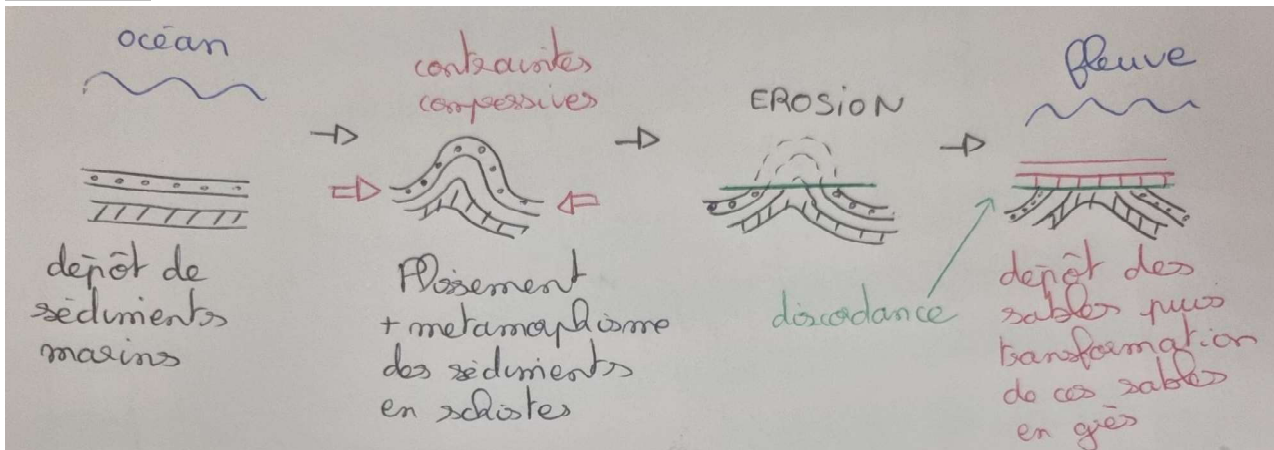 océan
dépôt de
sédiments
marins
contraintes
compressives
Plissement
+ metamorphisme
des sédiments
en schistes
EROSION
discordance
fleuve
dépôt des
sables puis
transformation
de ces sables
en grès